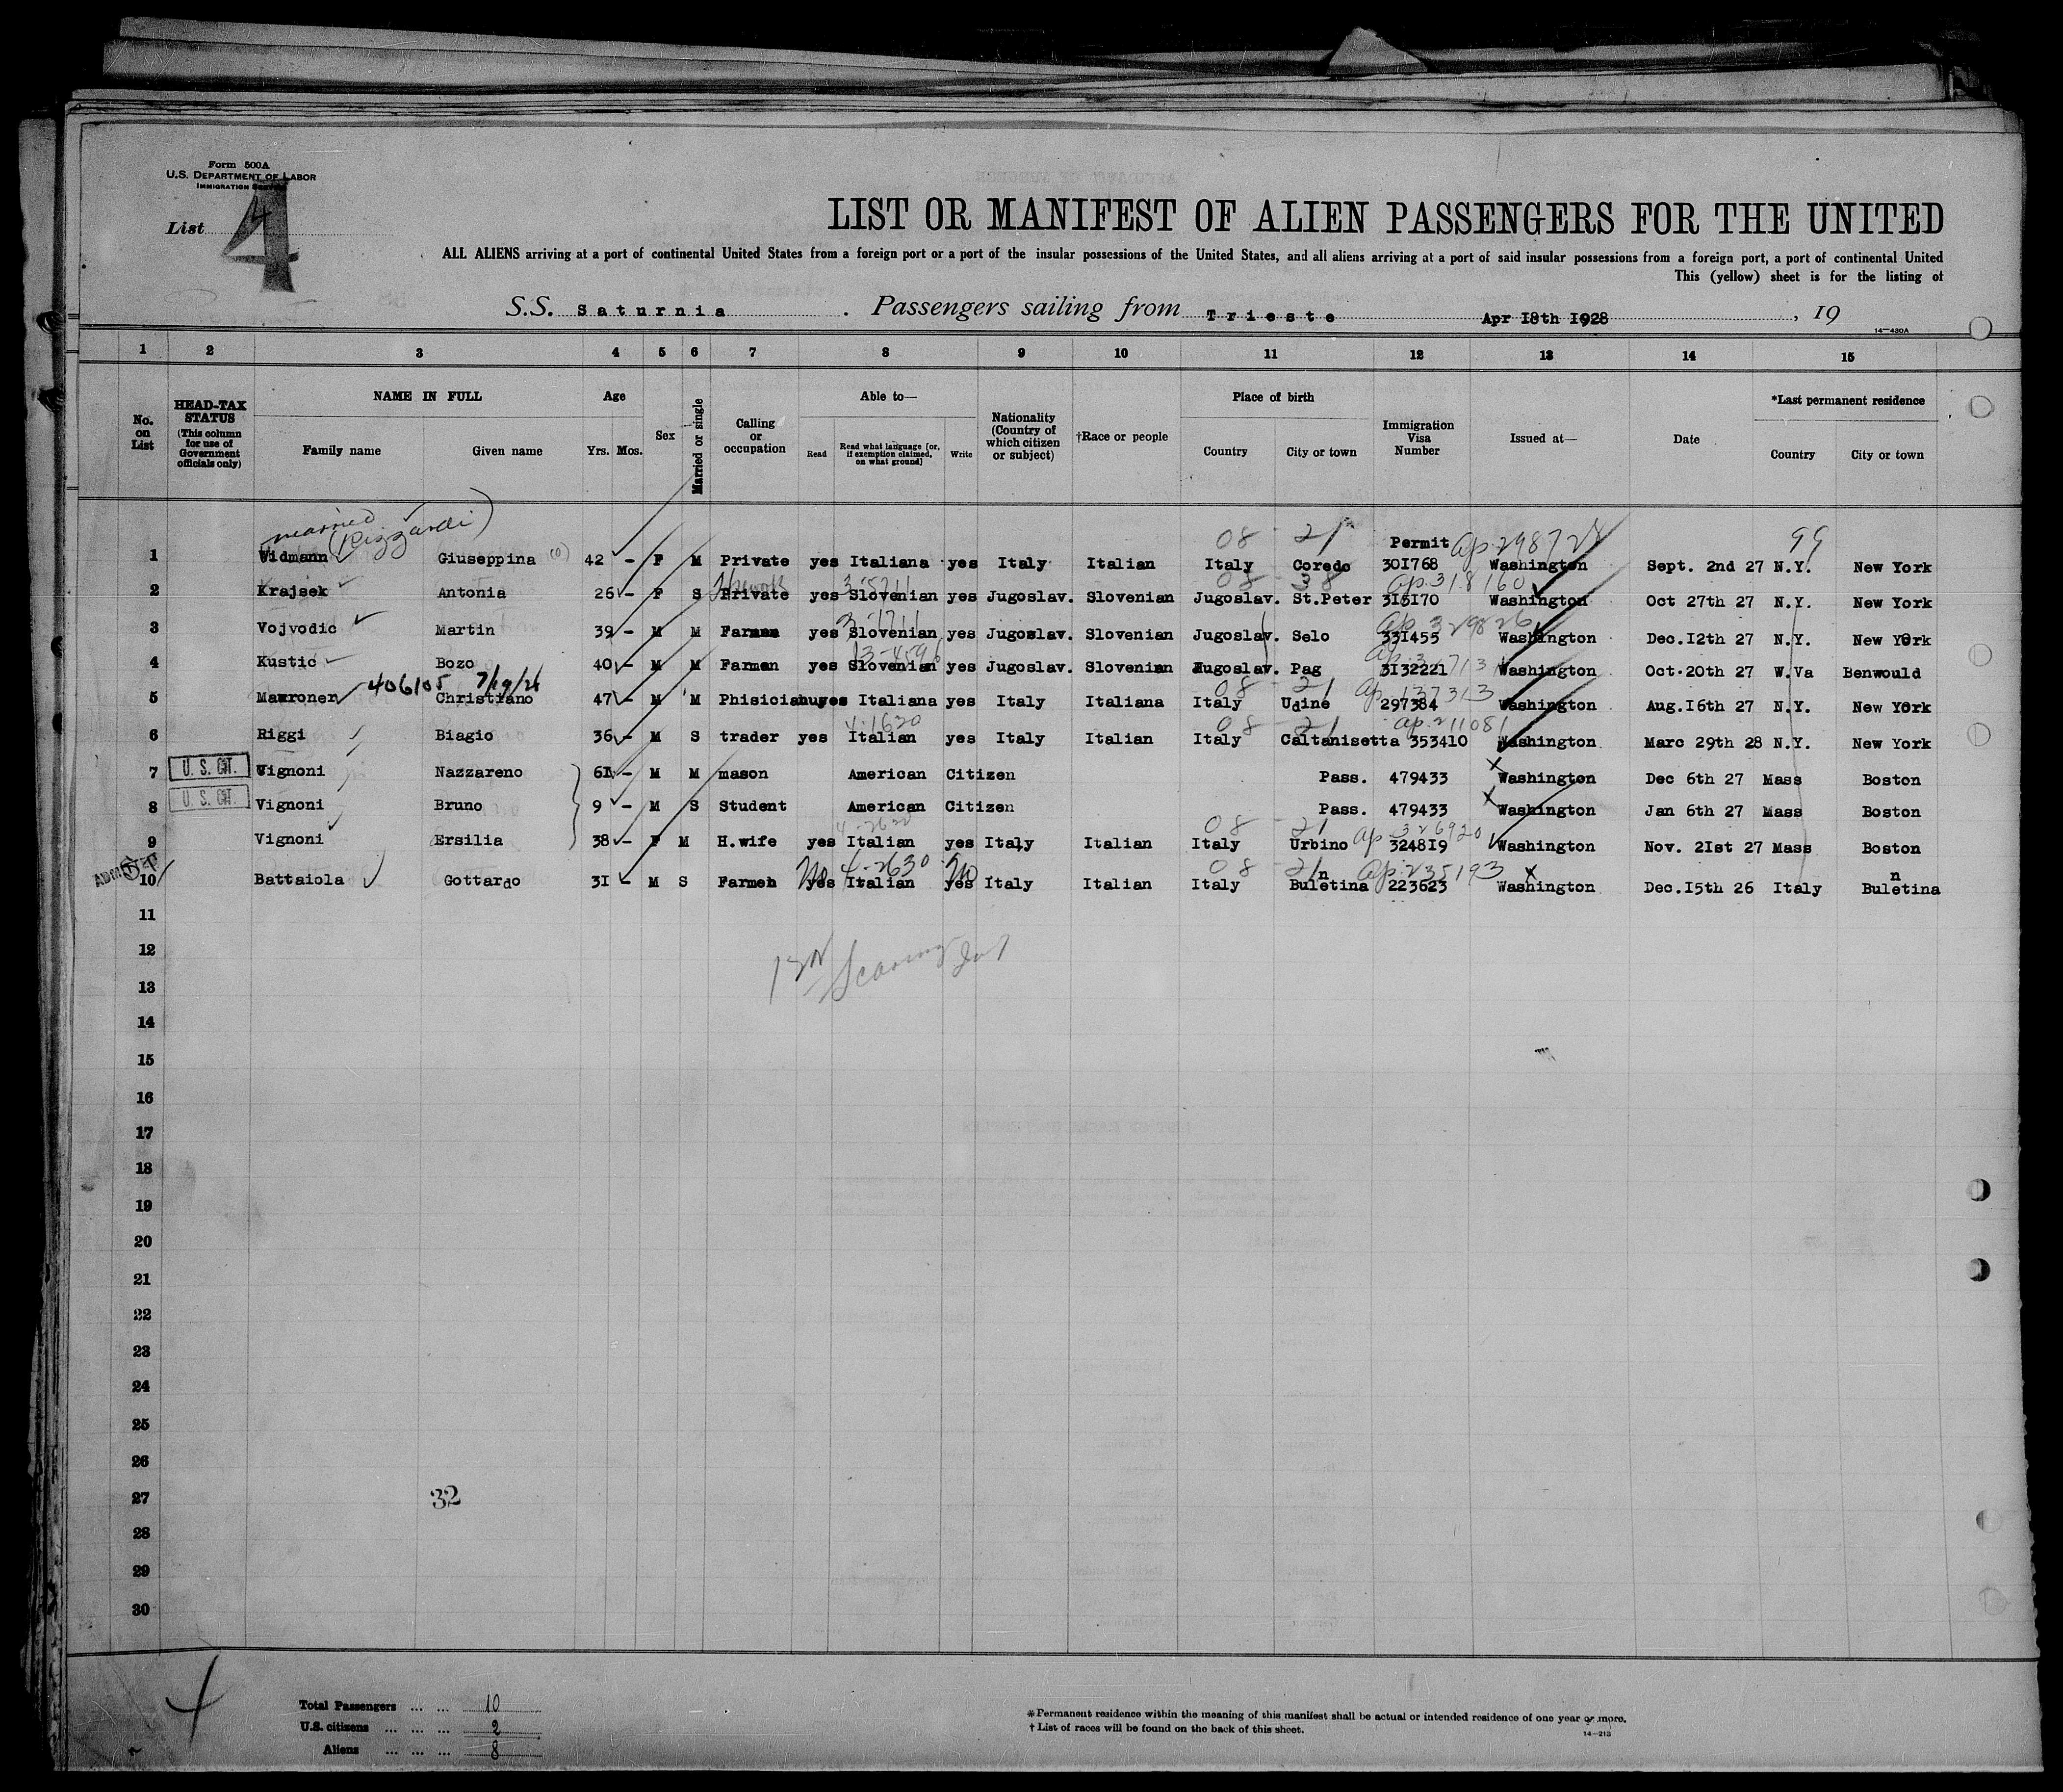 Form 500A
U.S. DEPARTMENT OF LABOR
IMMIGRATION SERVICE
List 4
4
LIST OR MANIFEST OF ALIEN PASSENGERS FOR THE UNITED
ALL ALIENS arriving at a port of continental United States from a foreign port or a port of the insular possessions of the United States, and all aliens arriving at a port of said insular possessions from a foreign port, a port of continental United
This (yellow) sheet is for the listing of
S.S. Saturnia . Passengers sailing from Trieste Apr I8th I928 , 19
14—430A
1 2 3 4 5 6 7 8 9 10 11 12 13 14 15
No. on List
HEAD-TAX STATUS (This column for use of Government officials only)
NAME IN FULL
Family name Given name
Age
Yrs. Mos.
Sex
Married or single
Calling or occupation
Able to—
Read Read what language [or, if exemption claimed, on what ground] Write
Nationality (Country of which citizen or subject)
†Race or people
Place of birth
Country City or town
Immigration Visa Number
Issued at—
Date
*Last permanent residence
Country City or town
married (Rizzardi) 08 21 Permit ap 298728 99
1 Widmann Giuseppina 42 - F M Private yes Italiana yes Italy Italian Italy Coredo 30I768 Washington Sept. 2nd 27 N.Y. New York
3-5711 08 38 ap.318160
2 Krajsek Antonia 26 - F S Private yes Slovenian yes Jugoslav. Slovenian Jugoslav. St.Peter 3I5I70 Washington Oct 27th 27 N.Y. New York
3-1711 ap 329826
3 Vojvodic Martin 39 - M M Farman yes Slovenian yes Jugoslav. Slovenian Jugoslav. Selo 33I455 Washington Dec.I2th 27 N.Y. New York
13-4596
4 Kustic Bozo 40 - M M Farman yes Slovenian yes Jugoslav. Slovenian Jugoslav. Pag 3I3222I Washington Oct.20th 27 W.Va Benwould
406105 7/19/28 08 21 ap 137313
5 Mawroner Christiano 47 - M M Phisician yes Italiana yes Italy Italiana Italy Udine 297384 Washington Aug.I6th 27 N.Y. New York
4-1620 08 21 ap.211081
6 Riggi Biagio 36 - M S trader yes Italian yes Italy Italian Italy Caltanisetta 3534I0 Washington Marc 29th 28 N.Y. New York
7 U. S. CIT. Vignoni Nazzareno 6I - M M mason American Citizen Pass. 479433 Washington Dec 6th 27 Mass Boston
8 U. S. CIT. Vignoni Bruno 9 - M S Student American Citizen Pass. 479433 Washington Jan 6th 27 Mass Boston
08 21 ap 326920
9 Vignoni Ersilia 38 - F M H.wife yes Italian yes Italy Italian Italy Urbino 3248I9 Washington Nov. 2Ist 27 Mass Boston
ADMITTED No 4-2630 No 08 21 n ap.235193 n
10 Battaiola Gottardo 3I - M S Farmen yes Italian yes Italy Italian Italy Buletina 223623 Washington Dec.I5th 26 Italy Buletina
11
12
13
14
15
16
17
18
19
20
21
22
23
24
25
26
27 32
28
29
30
4
Total Passengers ... ... 10
U.S. citizens ... ... ... 2
Aliens ... ... ... 8
*Permanent residence within the meaning of this manifest shall be actual or intended residence of one year or more.
† List of races will be found on the back of this sheet.
14—213